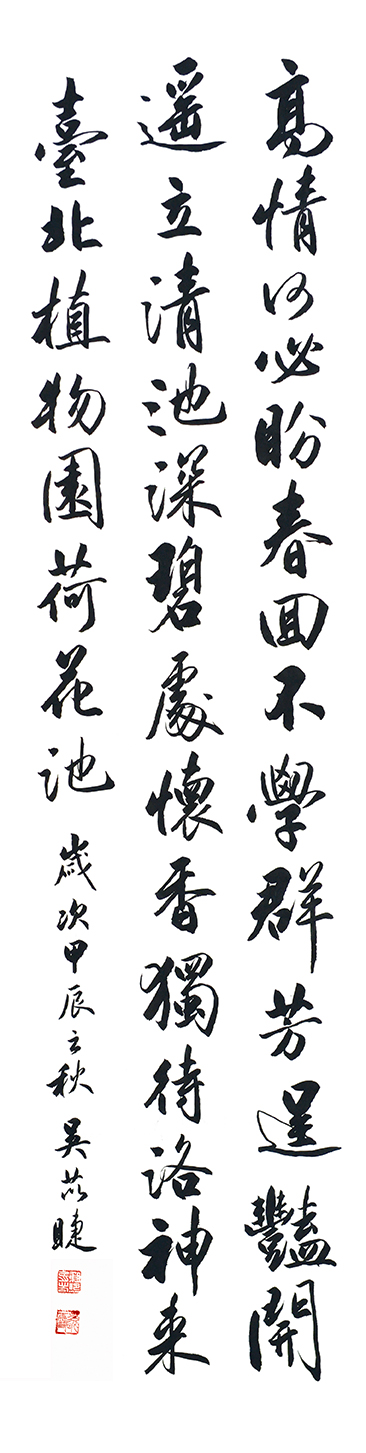 高情何必盼春回不學群芳逞豔開
遥立清池深碧處懷香獨待洛神来
臺北植物園荷花池 歲次甲辰之秋 吳苡睫